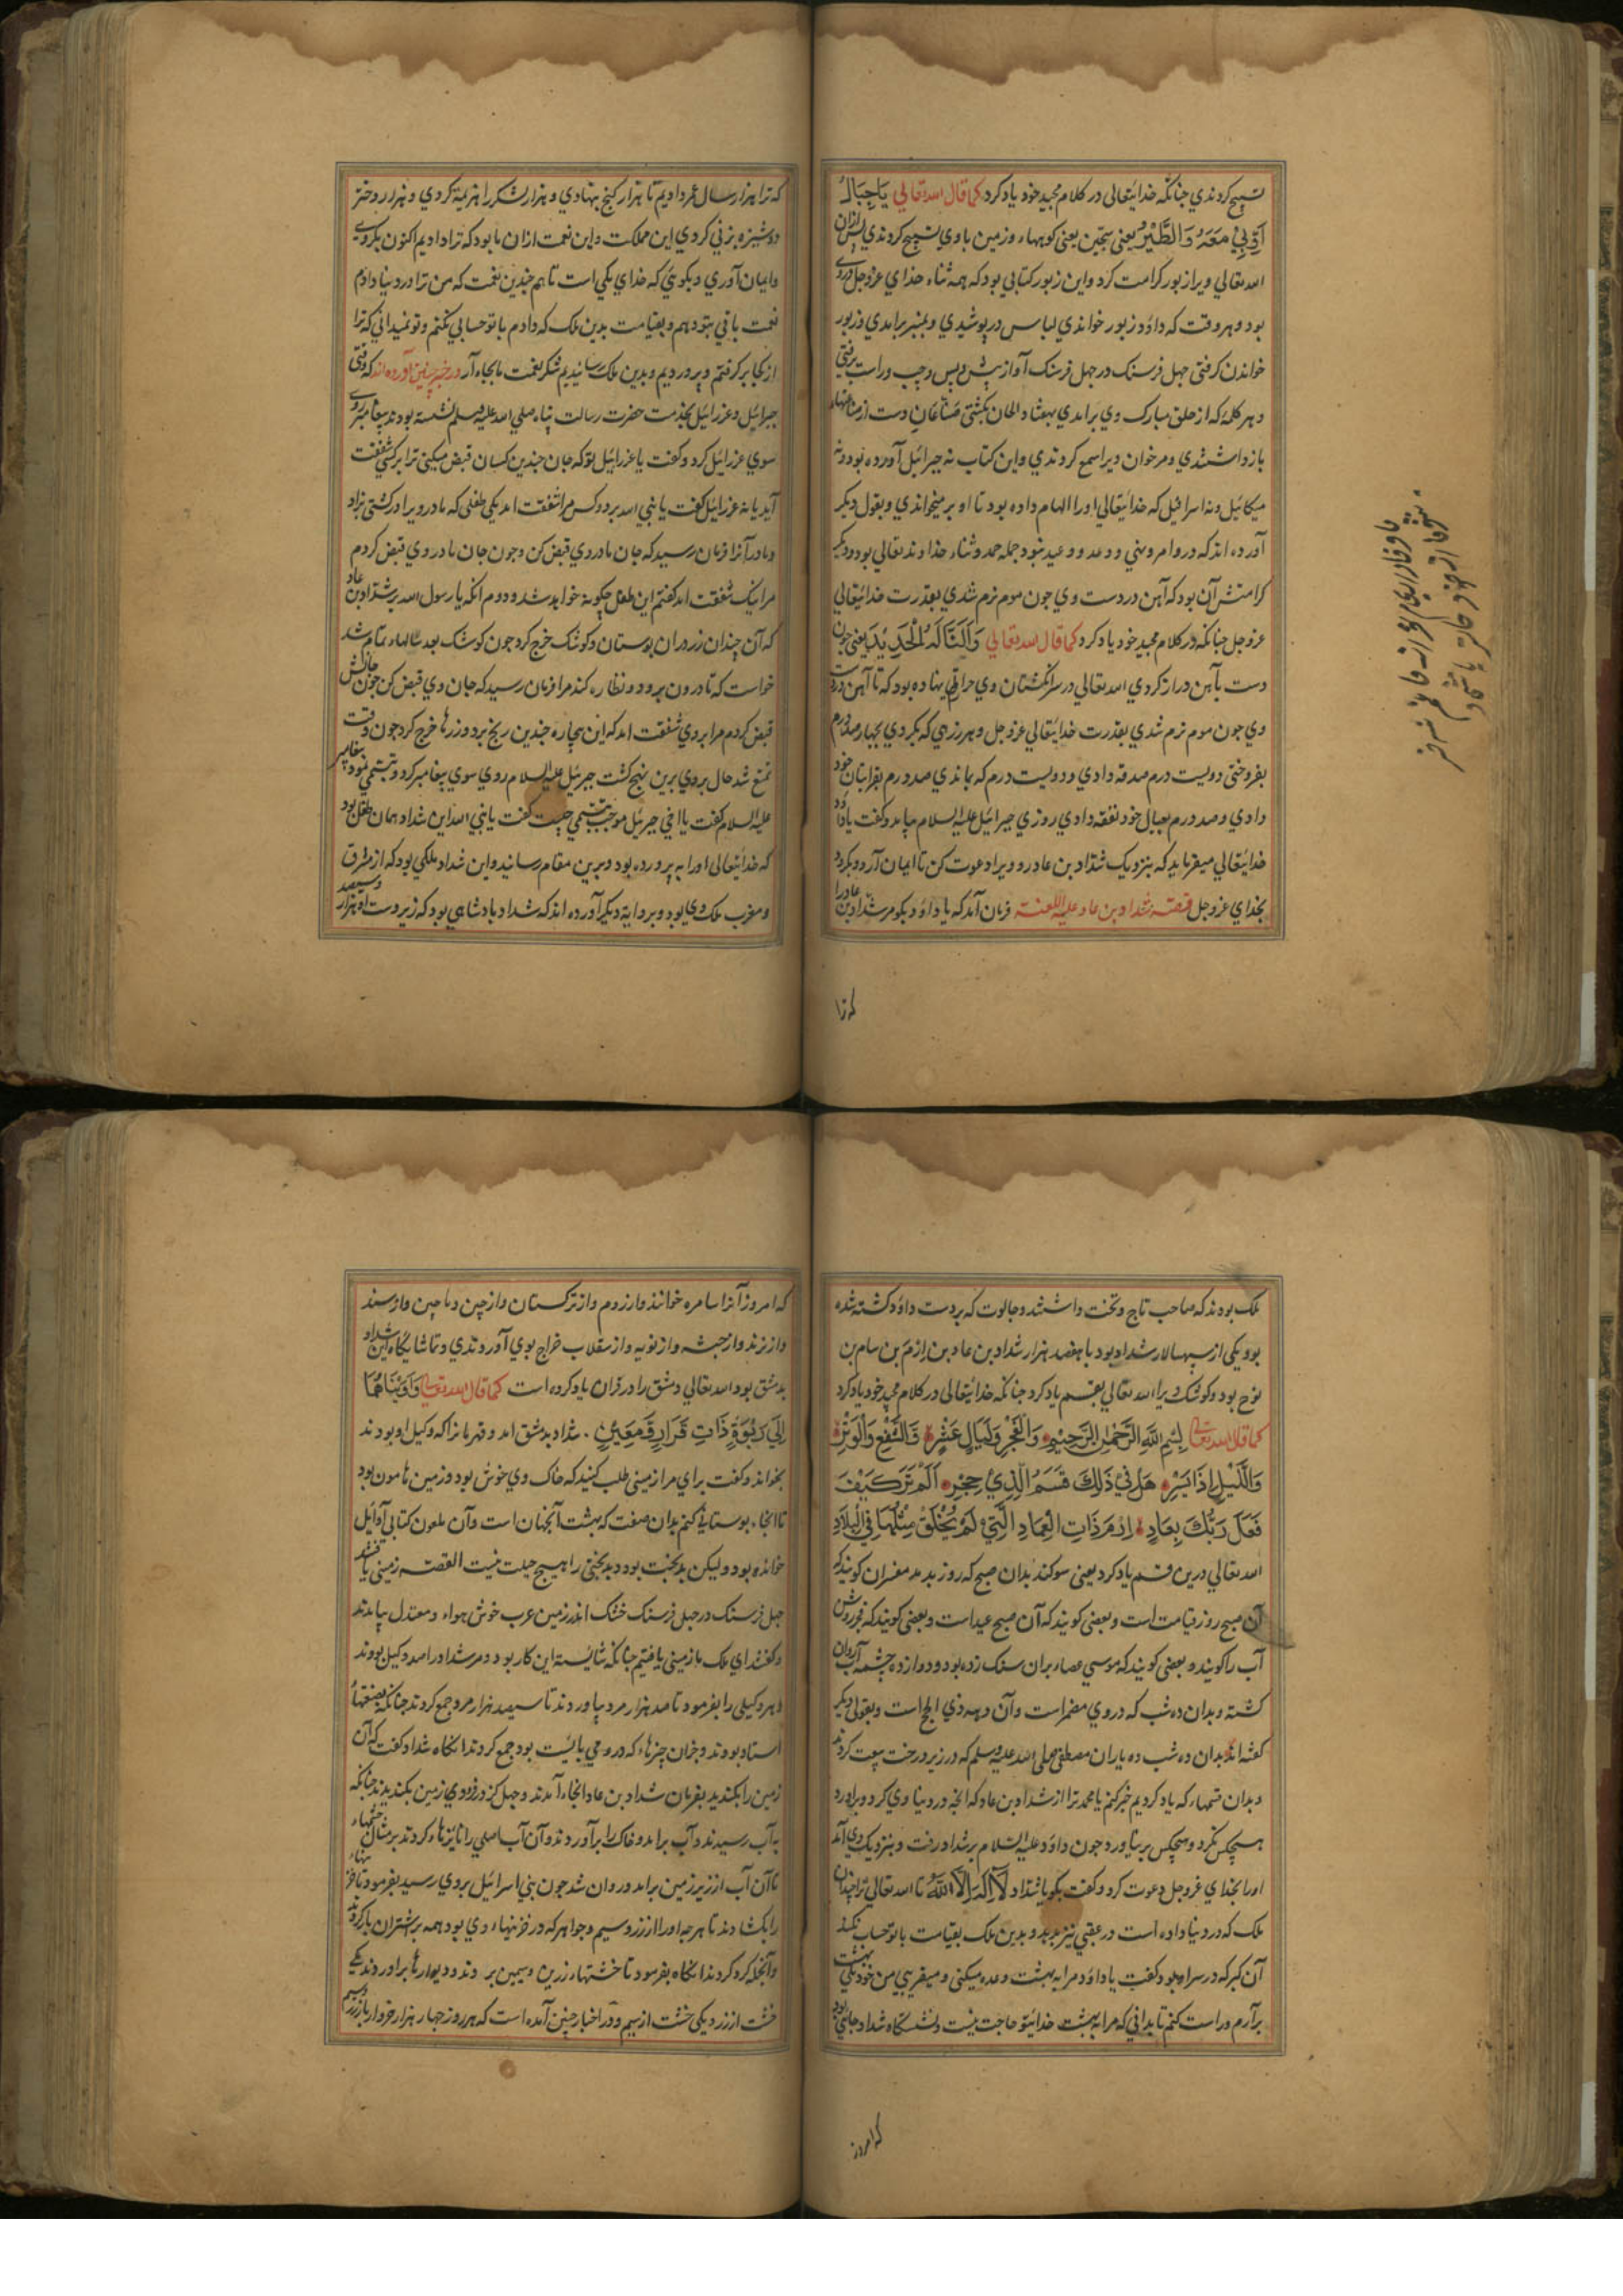 تسبیح کردندي چنانکه خدایتعالی در کلام مجید خود یاد کرد کما قال الله تعالي یَا جِبَالُ
اَوِّبِيْ مَعَهُ وَالطَّيْرَ یعنی سبّحین یعنی کوهها و زمین با وي تسبیح کردندي پس ازان
الله تعالي ویرا زبور کرامت کرد و این زبور کتابي بود که همه ثناء خداي عزوجل دروي
بود و هر وقت که داؤد زبور خواندي لباس در پوشیدي و بمنبر برآمدي و زبور
خواندن کرفتی چهل فرسنک در چهل فرسنک آواز پیش و پس و چپ و راست برفتی
و هر کلمه که از حلق مبارک وي برآمدي بهفتاد الحان بکشتي صناعان دست از صناعتها
باز داشتندي و مرخوان ویرا سمع کردندي و این کتاب نه جبرائیل آورده بود و نه
میکائیل و نه اسرافیل که خدایتعالي اورا الهام داده بود تا او بر میخواندي و بقول دیکر
آورده اند که درو امر و نهي و وعد و وعید نبود جمله حمد و ثناء خداوند تعالي بود و دیکر
کرامتش آن بود که آهن در دست وي چون موم نرم شدي بقدرت خدایتعالي
عزوجل چنانکه در کلام مجید خود یاد کرد کما قال الله تعالي وَاَلَنَّا لَهُ الْحَدِيْدَ یعنی چون
دست بآهن دراز کردي الله تعالي در سر انکشتان وي حرارتي نهاده بود که تا آهن در دست
وي چون موم نرم شدي بقدرت خدایتعالي عزوجل و هر زرهي که بکردي بچهار صد درم
بفروختی دویست درم صدقه دادي و دویست درم که بماندي صد درم بقرابتان خود
دادي و صد درم بعیال خود نفقه دادي روزي جبرائیل علیه السلام بیامد و کفت یا داؤد
خدایتعالي میفرماید که بنزدیک شداد بن عاد رو و ویرا دعوت کن تا ایمان آرد و بکرود
بخداي عزوجل قصّه شداد بن عاد علیه اللعنة فرمان آمد که یا داؤد بکو مر شداد بن عاد را
که ترا
که ترا هزار سال عمر دادیم تا هزار کنج بنهادي و هزار لشکر را هزیمة کردي و هزار دختر
دوشیزه بزني کردي این مملکت و این نعمت ازان ما بود که ترا دادیم اکنون بکروي
و ایمان آوري و بکوئي که خداي یکي است تا هم چندین نعمت که من ترا در دنیا دادم
نعمت باقي بتو دهم و بقیامت بدین ملک که دادم با تو حسابي نکنم و تو نمیداني که ترا
از کجا بر کرفتم و پروردیم و بدین ملک رسانیدیم شکر نعمت ما بجاء آر در خبر چنین آورده اند که وقتی
جبرائیل و عزرائیل بخدمت حضرت رسالت پناه صلي الله علیه وسلم نشسته بودند پیغامبر روي
سوي عزرائیل کرد و کفت یا عزرائیل تو که جان چندین کسان قبض میکنی ترا بر کسي شفقت
آید یا نه عزرائیل کفت یا نبي الله بر دو کس مرا شفقت امد یکي طفلي که مادر ویرا در کشتي بزاد
و مادر آنرا فرمان رسید که جان مادر وي قبض کن و چون جان مادر وي قبض کردم
مرا نیک شفقت امد کفتم این طفل چکونه خواهد شد و دوم آنکه یا رسول الله بر شداد بن عاد
که آن چندان زر دران بوستان و کوشک خرج کرد چون کوشک بعد سالها تمام شد
خواست که تا درون برود و نظاره کند مرا فرمان رسید که جان وي قبض کن چون جانش
قبض کردم مرا بروي شفقت امد که این بیچاره چندین رنج برد و زرها خرج کرد چون وقت
تمتع شد حال بروي برین نهج کشت جبرئیل علیه السلام روي سوي پیغامبر کرد و تبسمي نمود پیغامبر
علیه السلام کفت یا اخي جبرئیل موجب تبسمي چیست کفت یا نبي الله این شداد همان طفل بود
که خدایتعالی اورا بپرورده بود و برین مقام رسانید و این شداد ملکي بود که از مشرق
و مغرب ملک وي بود و بروایة دیکر آورده اند که شداد پادشاهي بود که زیر دست او هزار و سیصد
ملک بودند که صاحب تاج و تخت داشتند و جالوت که بر دست داؤد کشته شده
بود یکي از سپهسالار شداد بود با هفصد هزار شداد بن عاد بن اِرَم بن سام بن
نوح بود و کوشک ویرا الله تعالي بقسم یاد کرد چنانکه خدایتعالی در کلام مجید خود یاد کرد
کما قال الله تعالی بِسْمِ اللهِ الرَّحْمٰنِ الرَّحِيْمِ وَالْفَجْرِ وَلَيَالٍ عَشْرٍ وَالشَّفْعِ وَالْوَتْرِ
وَاللَّيْلِ اِذَا يَسْرِ هَلْ فِيْ ذٰلِكَ قَسَمٌ لِّذِيْ حِجْرٍ اَلَمْ تَرَ كَيْفَ
فَعَلَ رَبُّكَ بِعَادٍ اِرَمَ ذَاتِ الْعِمَادِ الَّتِيْ لَمْ يُخْلَقْ مِثْلُهَا فِي الْبِلَادِ
الله تعالي درین قسم یاد کرد یعني سوکند بدان صبح که روز بدمد مفسران کویند که
آن صبح روز قیامت است و بعضي کویند که آن صبح عید است و بعضي کویند که فجر روش
آب را کویند و بعضي کویند که موسي عصا بران سنک زده بود و دوازده چشمه آب روان
کشته و بدان ده شب که دروي مضمر است و آن دهه ذي الحج است و بقولي دیکر
کفته اند بدان ده شب ده یاران مصطفی صلي الله علیه وسلم که در زیر درخت بیعت کردند
و بدان قسمهاء که یاد کردیم خبر کنم یا محمد ترا از شداد بن عاد که آنچه در دنیا وي کرد و براورد
هیچکس نکرد و هیچکس بر نیاورد چون داؤد علیه السلام بر شداد رفت و بنزدیک وي آمد
اورا بخداي عزوجل دعوت کرد و کفت بکو یا شداد لَا اِلٰهَ اِلَّا اللهُ تا الله تعالي ترا چندان
ملک که در دنیا داده است در عقبي نیز بدهد و بدین ملک بقیامت با تو حساب نکند
آن کبر که در سر او بود کفت یا داؤد مرا به بهشت وعده میکني و میفریبي من خود بهشتي
برآرم و راست کنم تا بداني که مرا به بهشت خداي تو حاجت نیست و نشستکاه شداد جائي بود
که امروز
که امروز آنرا سامره خوانند و از روم و از ترکستان و از چین و ماچین و از سند
و از زند و از حبشه و از نوبه و از سقلاب خراج بوي آوردندي و تماشایکاه این شداد
بدمشق بود الله تعالي دمشق را در قران یاد کرده است کما قال الله تعالی وَاٰوَيْنَاهُمَا
اِلٰي رَبْوَةٍ ذَاتِ قَرَارٍ وَّمَعِيْنٍ شداد بدمشق امد و قهرمانرا که وکیل او بودند
بخواند و کفت براي مرا زمیني طلب کنید که خاک وي خوش بود و زمین هامون بود
تا انجا بوستانے کنم بدان صفت که بهشت آنجهان است و آن ملعون کتابي اوایل
خوانده بود و لیکن بدبخت بود و بدبختي را هیچ حیلت نیست القصه زمیني یافتند
چهل فرسنک در چهل فرسنک خشک اندر زمین عرب خوش هواء و معتدل بیامدند
و کفتند اي ملک ما زمیني یافتیم چنانکه شایسته این کار بود و مر شداد را صد وکیل بودند
و هر وکیلی را بفرمود تا صد هزار مرد بیاوردند تا سیصد هزار مرد جمع کردند چنانکه بصنعتها
استاد بودند و خران چیزهاء که درو مي بایست بود جمع کردند انکاه شداد کفت که آن
زمین را بکندید بفرمان شداد بن عاد انجاء آمدند و چهل کز فرودي زمین بکندیدند چنانکه
به آب رسیدند و آب برامد و خاک را برآوردند و آن آب اصلي را نایزهاء کردند بر مثال چشمهاء
تا آن آب از زیر زمین برامد و روان شد چون بني اسرائیل بروي رسید بفرمود تا خزینهاء
را بکشادند تا هر چه اورا از زر و سیم و جواهر که در خزینهاء وي بود همه بر شتران بار کردند
و آنجا کرد کردند انکاه بفرمود تا خشتهاء زرین و سیمین بر دند و دیوارها برآوردند یکي
خشت از زر و یکي خشت از سیم و در اخبار چنین آمده است که هر روز چهار هزار خروار بار زر و سیم